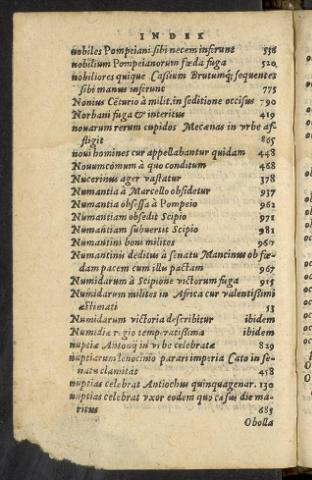 INDEX
nobiles Pompeiani sibi necem inferunt 558
nobilium Pompeianorum fœda fuga 520
nobiliores quique Cassium Brutumq; sequentes
sibi manus inferunt 775
Nonius Cēturio à milit. in seditione occisus 790
Norbani fuga & interitus 419
nouarum rerum cupidos Mecænas in vrbe af-
fligit 805
noui homines cur appellabantur quidam 448
Nouumcómum à quo conditum 468
Nucerinus ager vastatur 378
Numantia à Marcello obsidetur 937
Numantia obsessa à Pompeio 962
Numantiam obsedit Scipio 971
Numantiam subuersit Scipio 981
Numantini boni milites 960
Numantinis deditus à senatu Mancinus ob fœ-
dam pacem cum illis pactam 967
Numidarum à Scipione victorum fuga 915
Numidarum milites in Africa cur valentissimi
æstimati 53
Numidarum victoria describitur ibidem
Numidia regio temperatissima ibidem
nuptiæ Antonij in vrbe celebratæ 829
nuptiarum lenocinio parari imperia Cato in se-
natu clamitat 458
nuptias celebrat Antiochus quinquagenar. 130
nuptias celebrat vxor eodem quo casus die ma-
ritus 685
Obolla